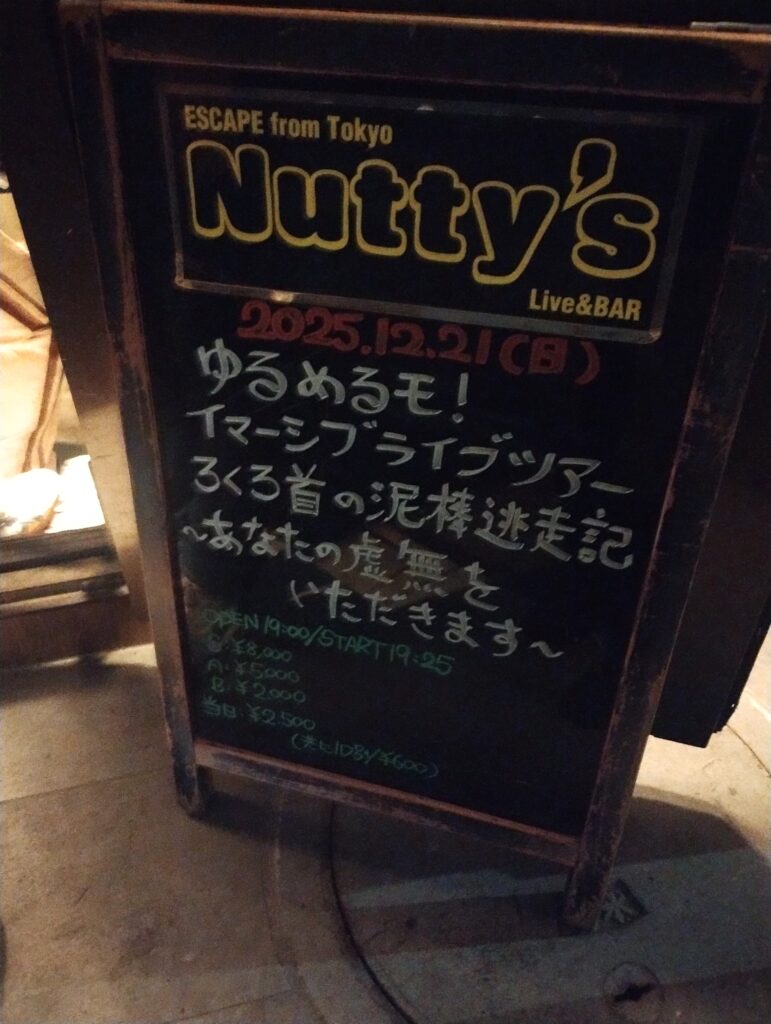 ESCAPE from Tokyo
Nutty's
Live&BAR
2025.12.21(日)
ゆるめるモ!
イマーシブライブツアー
ろくろ首の泥棒逃走記
~あなたの虚無を
いただきます~
OPEN 19:00/START 19:25
S:¥8,000
A:¥5,000
B:¥2,000
当日:¥2,500
(共に1D別¥600)